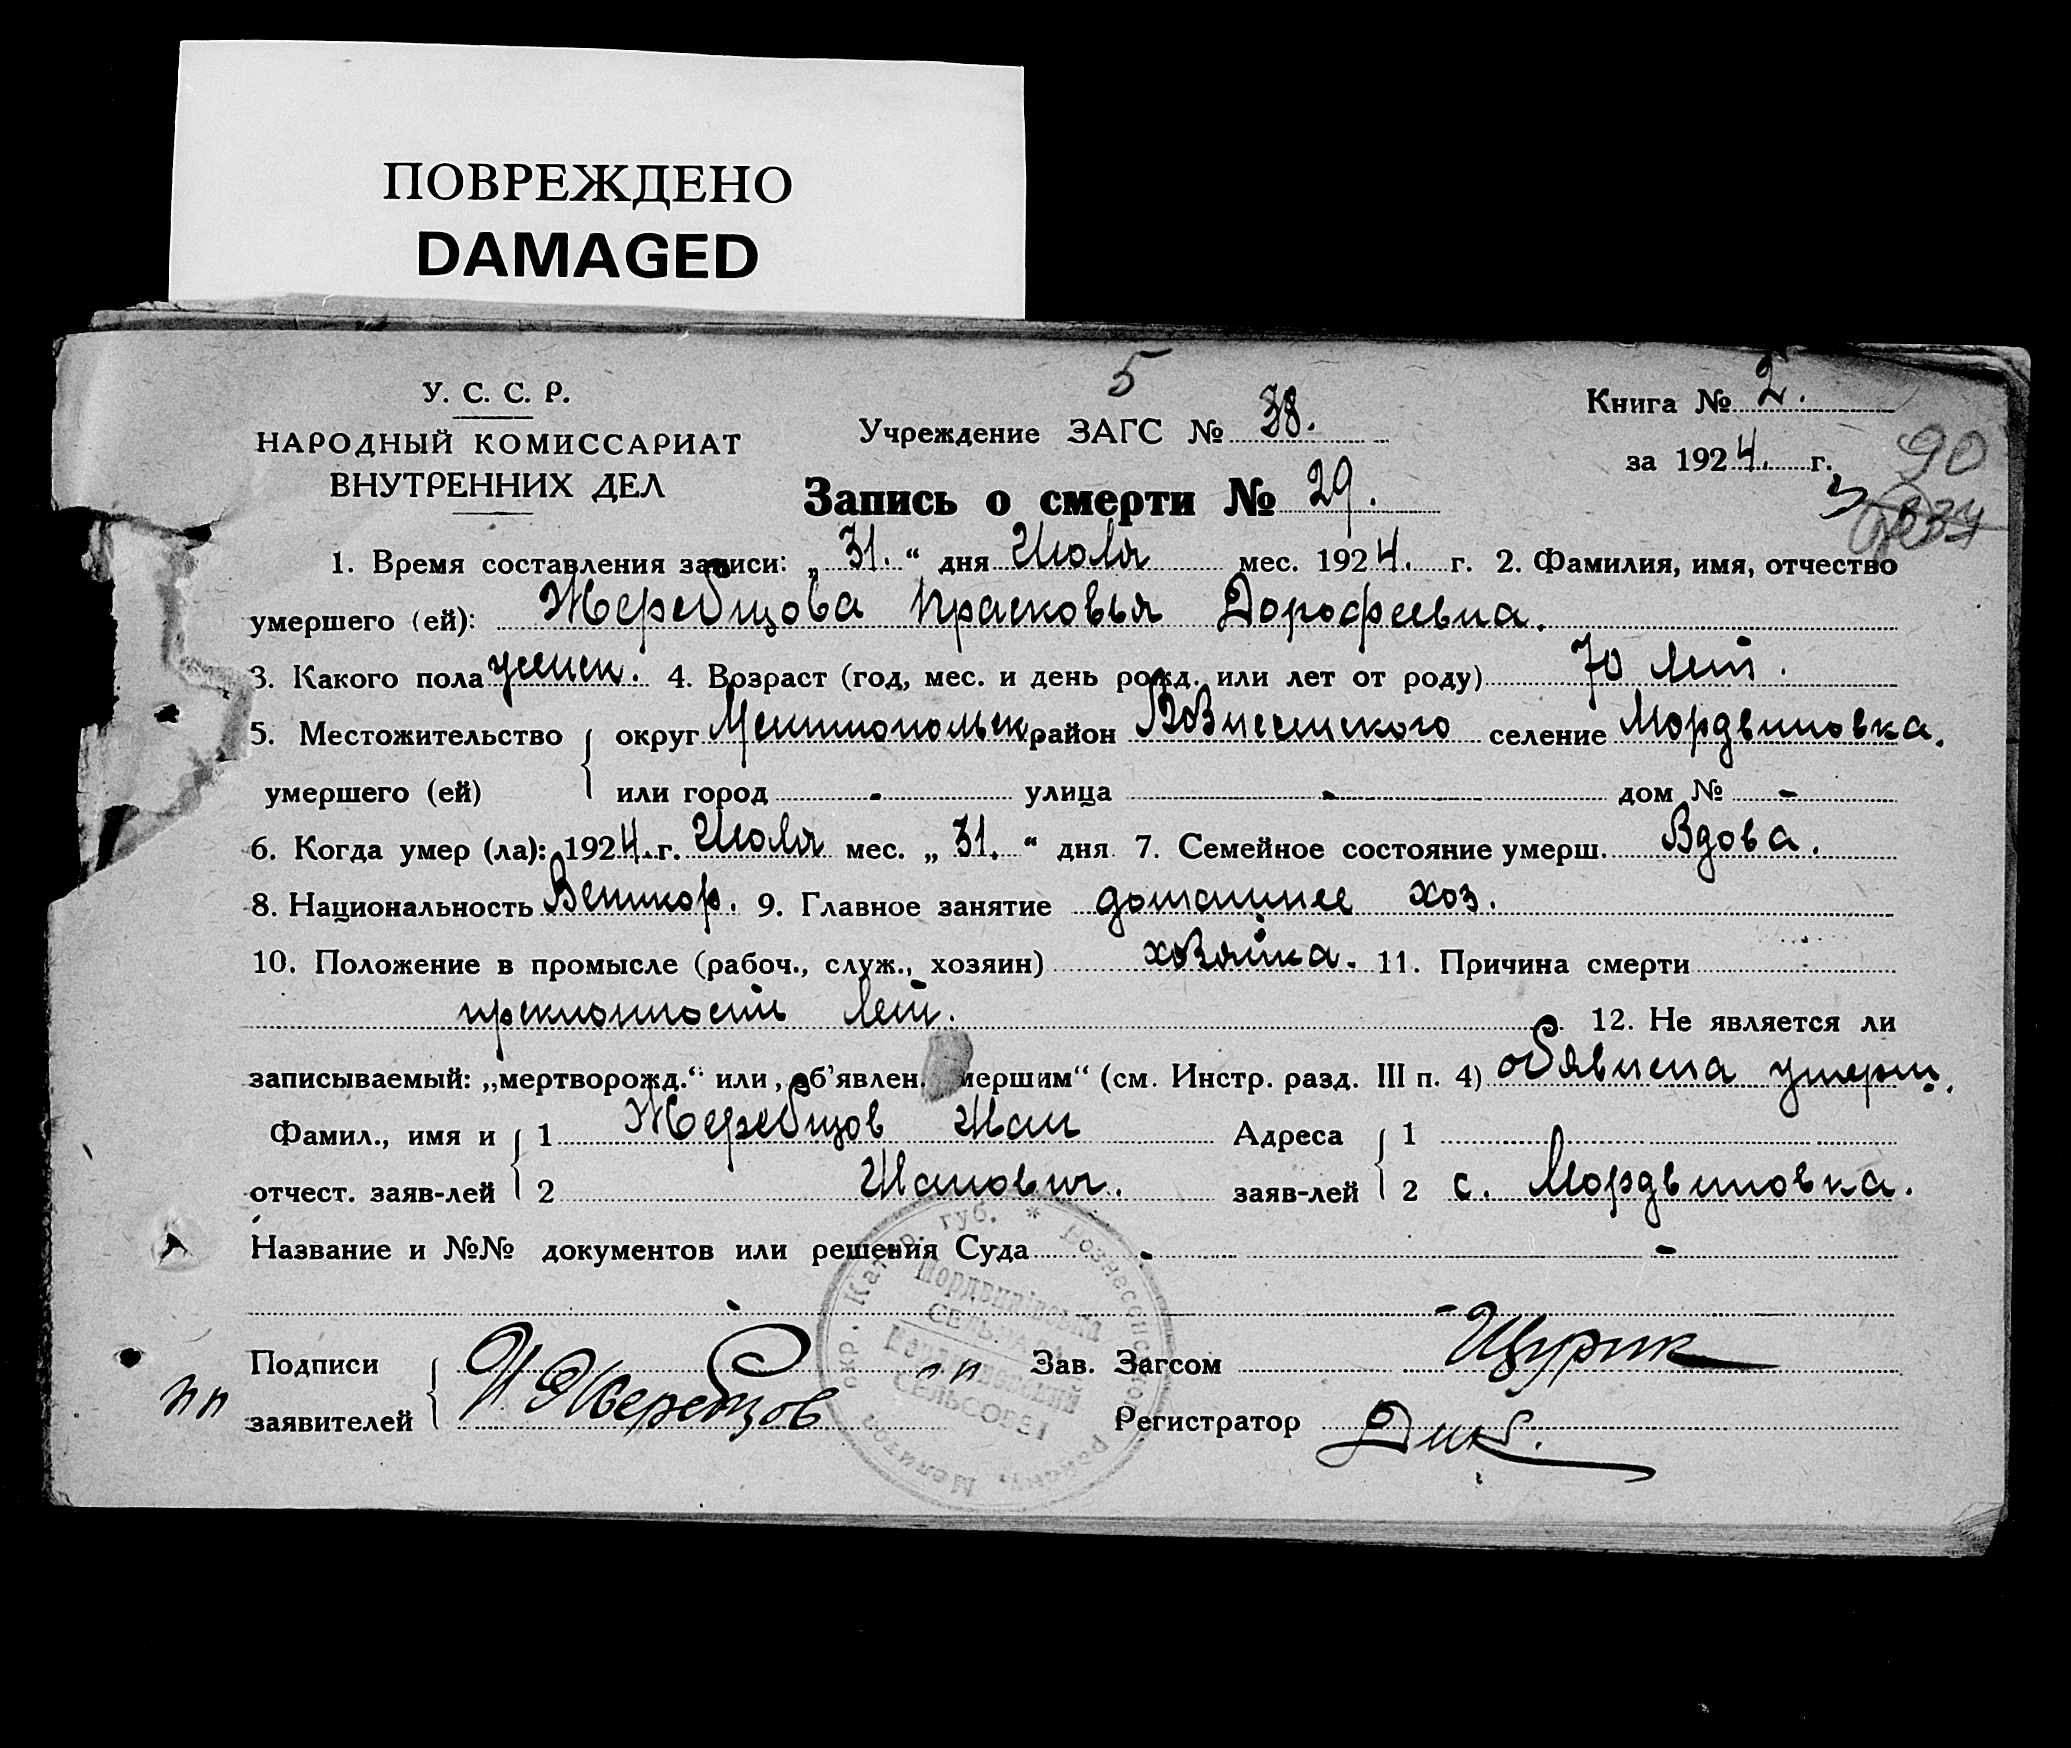 ПОВРЕЖДЕНО
DAMAGED
5
У. С. С. Р.
НАРОДНЫЙ КОМИССАРИАТ
ВНУТРЕННИХ ДЕЛ
Учреждение ЗАГС № 38.
Книга № 2.
за 1924. г.
90
Запись о смерти № 29.
1. Время составления записи: „31.“ дня Июля мес. 1924. г. 2. Фамилия, имя, отчество
умершего (ей): Жеребцова Прасковья Дорофеевна.
3. Какого пола женск. 4. Возраст (год, мес. и день рожд. или лет от роду) 70 лет.
5. Местожительство округ Мелитопольск район Вознесенского селение Мордвиновка.
умершего (ей) или город - улица - дом № -
6. Когда умер (ла): 1924. г. Июля мес. „31.“ дня 7. Семейное состояние умерш. Вдова.
8. Национальность Великор. 9. Главное занятие домашнее хоз.
10. Положение в промысле (рабоч., служ., хозяин) хозяйка. 11. Причина смерти
преклонность лет. 12. Не является ли
записываемый: „мертворожд.“ или „об’явлен. умершим“ (см. Инстр. разд. III п. 4) обявлена умерш.
Фамил., имя и 1 Жеребцов Иван Адреса 1
отчест. заяв-лей 2 Иванович. заяв-лей 2 с. Мордвиновка.
Название и №№ документов или решения Суда - -
Подписи И Жеребцов Зав. Загсом Щурик
заявителей Регистратор
пп
Мордвинівська
СЕЛЬРАДА
Мордвиновский
СЕЛЬСОВЕТ